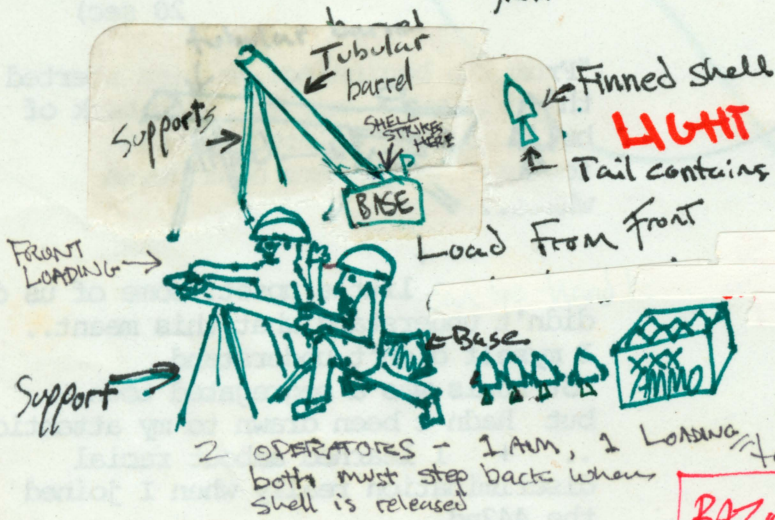 Tubular
barrel
Supports
SHELL
STRIKES
HERE
BASE
Finned shell
LIGHT
Tail contains
Load From Front
FRONT
LOADING
Base
Support
XXX
AMMO
2 OPERATORS - 1 AIM, 1 LOADING
both must step back when
shell is released